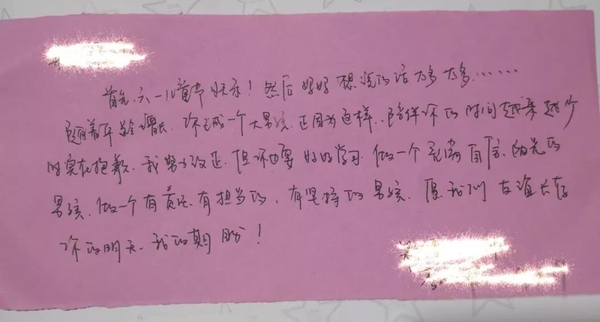 首先,六一儿童节快乐!然后妈妈想说的话太多太多……
随着年龄增长,你已成一个大男孩,正因为这样,陪伴你的时间越来越少
的实在抱歉,我努力改正,但你也要好好学习,做一个充满自信、阳光的
男孩,做一个有责任、有担当的、有坚持的男孩,愿我们友谊长存
你的明天,我的期盼!